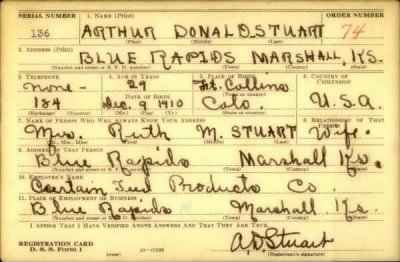 SERIAL NUMBER 1. NAME (Print) ORDER NUMBER
136 ARTHUR DONALD STUART 74
(First) (Middle) (Last)
2. ADDRESS (Print)
BLUE RAPIDS MARSHALL, KS.
(Number and street or R. F. D. number) (Town) (County) (State)
3. TELEPHONE 4. AGE IN YEARS 5. PLACE OF BIRTH 6. COUNTRY OF CITIZENSHIP
none - 29 Ft. Collins
DATE OF BIRTH (Town or county)
184 Dec. 9 1910 Colo. U.S.A.
(Exchange) (Number) (Mo.) (Day) (Yr.) (State or country)
7. NAME OF PERSON WHO WILL ALWAYS KNOW YOUR ADDRESS 8. RELATIONSHIP OF THAT PERSON
Mrs. Ruth M. STUART Wife.
(Mr., Mrs., Miss) (First) (Middle) (Last)
9. ADDRESS OF THAT PERSON
Blue Rapids Marshall Ks.
(Number and street or R. F. D. number) (Town) (County) (State)
10. EMPLOYER'S NAME
Certain Teed Products Co.
11. PLACE OF EMPLOYMENT OR BUSINESS
Blue Rapids Marshall Ks.
(Number and street or R. F. D. number) (Town) (County) (State)
I AFFIRM THAT I HAVE VERIFIED ABOVE ANSWERS AND THAT THEY ARE TRUE.
REGISTRATION CARD
D. S. S. Form 1 A.D. Stuart
(Registrant's signature)